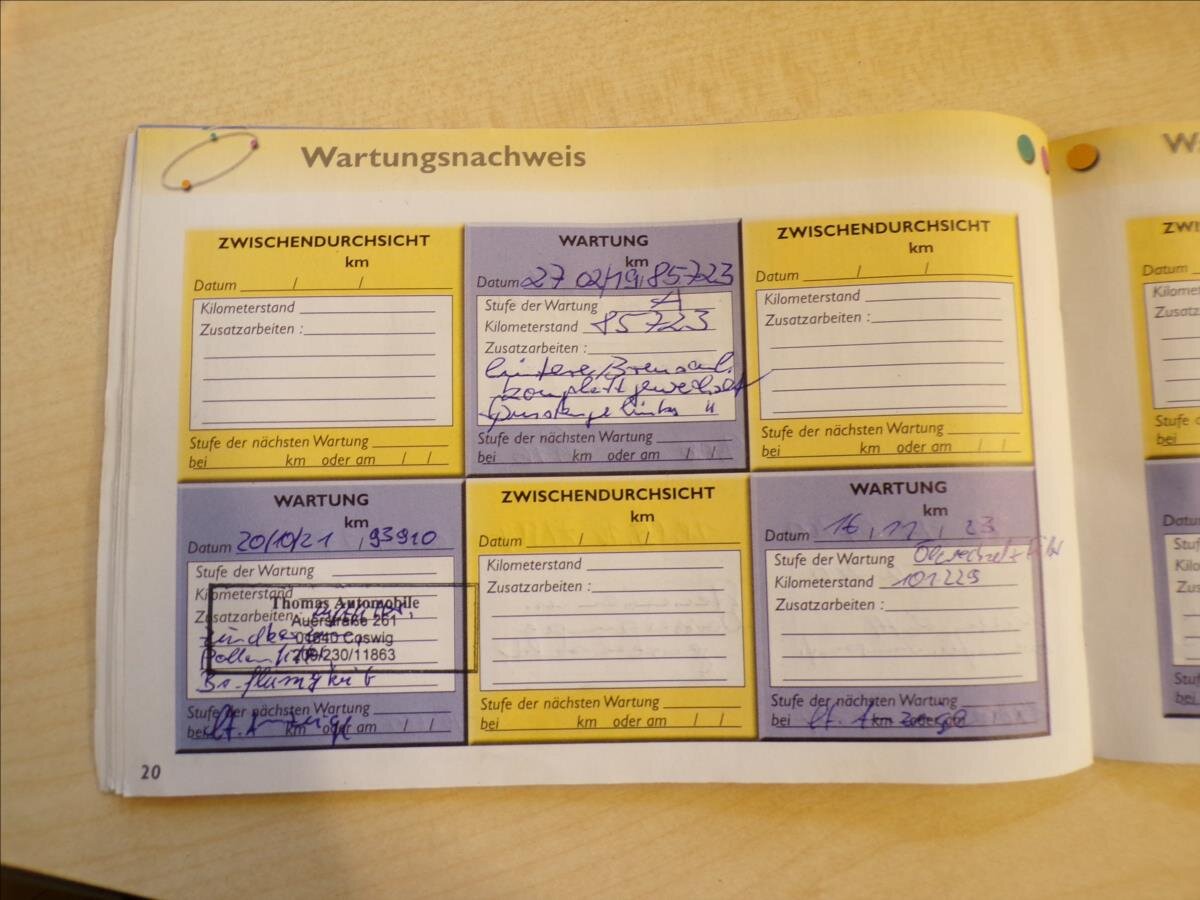 Wartungsnachweis
ZWISCHENDURCHSICHT
km
Datum / /
Kilometerstand
Zusatzarbeiten :
Stufe der nächsten Wartung
bei km oder am / /
WARTUNG
km
Datum 27 02/19 85723
Stufe der Wartung A
Kilometerstand 85723
Zusatzarbeiten :
hintere
komplett gewechselt
links "
Stufe der nächsten Wartung
bei km oder am / /
ZWISCHENDURCHSICHT
km
Datum / /
Kilometerstand
Zusatzarbeiten :
Stufe der nächsten Wartung
bei km oder am / /
WARTUNG
km
Datum 20/10/21 / 93910
Stufe der Wartung
Kilometerstand
Zusatzarbeiten :
Thomas Automobile
Auerstraße 261
01640 Coswig
209/230/11863
Stufe der nächsten Wartung
bei km oder am / /
ZWISCHENDURCHSICHT
km
Datum / /
Kilometerstand
Zusatzarbeiten :
Stufe der nächsten Wartung
bei km oder am / /
WARTUNG
km
Datum 16 / 11 / 23
Stufe der Wartung
Kilometerstand 101229
Zusatzarbeiten :
Stufe der nächsten Wartung
bei km oder am
20